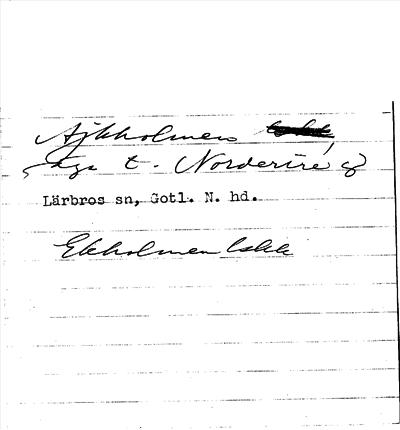 Ajkholmen
äga t. Norderiré
Lärbros sn, Gotl. N. hd.
Ekholmen